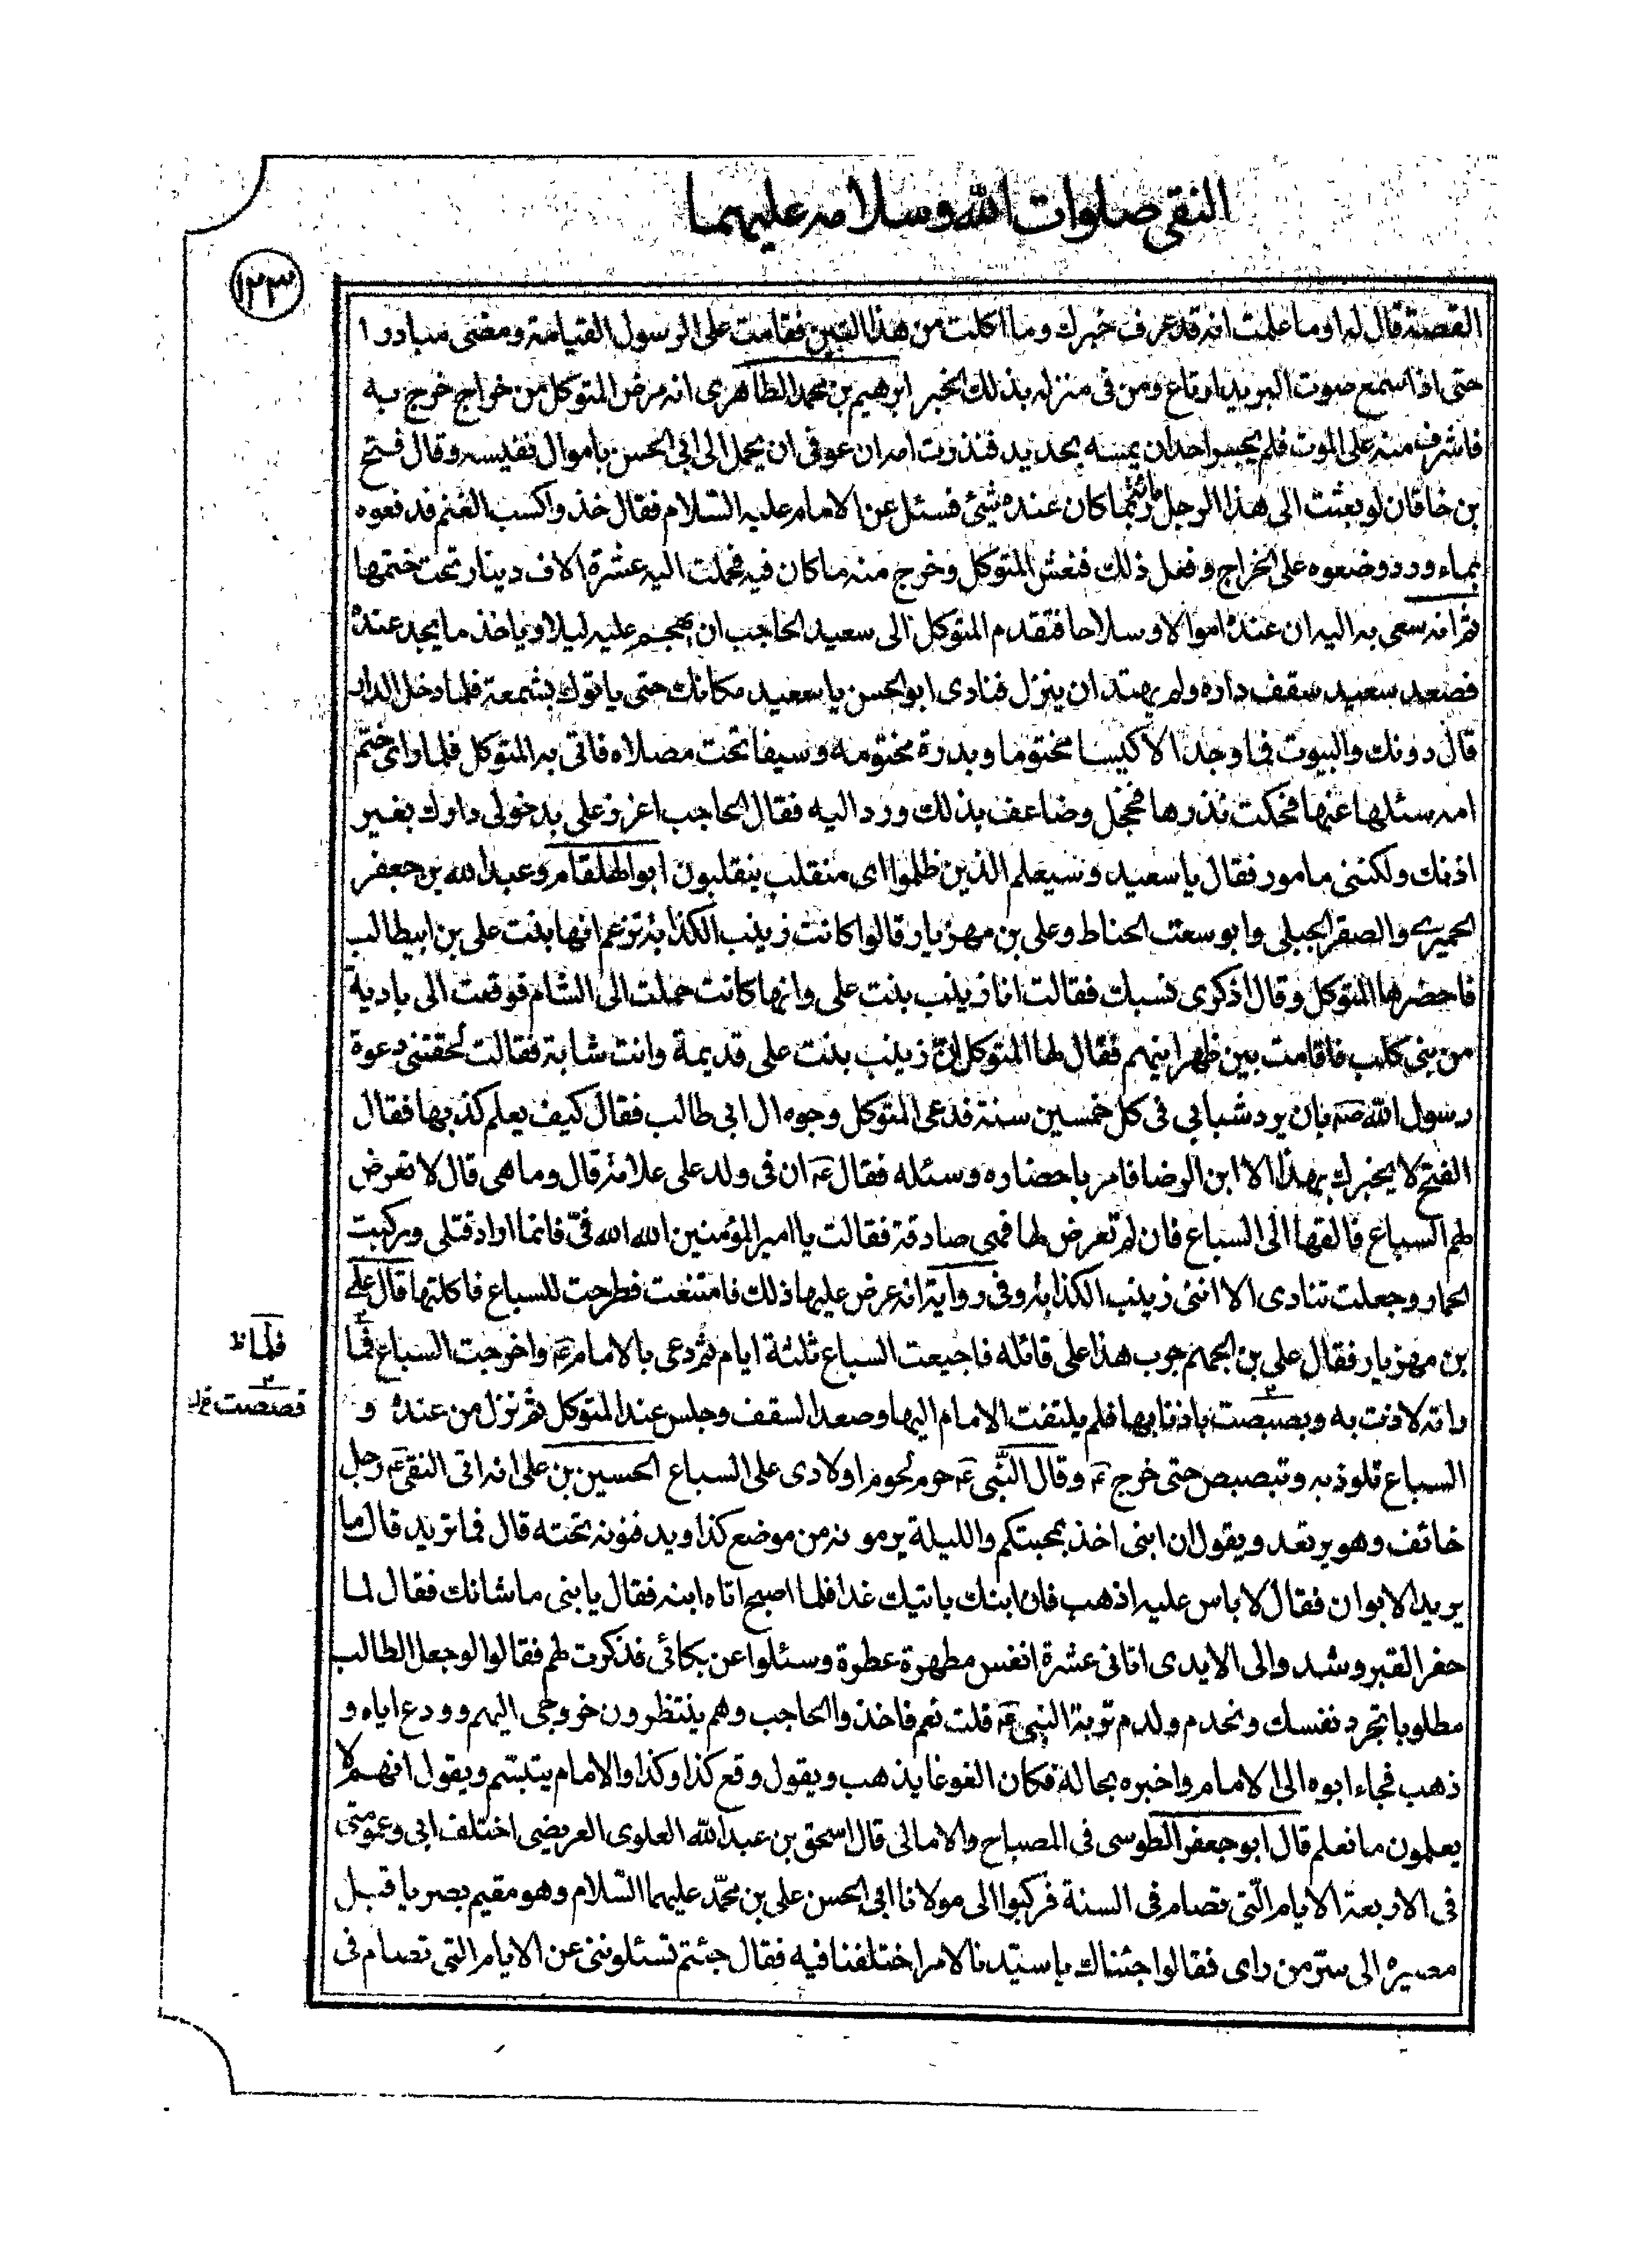 النقي صلوات الله وسلامه عليهما
١٢٣
القصة قال له اوما علمت انه قد عرف خبرك وما اكلت من هذا التين فقامت على الرسول القيامة ومضى مبادرا
حتى اذا سمع صوت البريد ارتاع ومن في منزله بذلك الخبر ابرهيم بن محمد الطاهرى انه مرض المتوكل من خراج خرج به
فاشرف منه على الموت فلم يجسر احد ان يمسه بحديد فنذرت امه ان عوفى ان يحمل الى ابي الحسن باموال نفيسه وقال فتح
بن خاقان لو بعثت الى هذا الرجل فربما كان عنده شيئ فسئل عن الامام عليه السّلام فقال خذوا كسب الغنم فدفعوه
بماء ورد وضعوه على الخراج وفعل ذلك فنعش المتوكل وخرج منه ما كان فيه فحملت اليه عشرة الاف دينار تحت ختمها
ثم انه سعى به اليه ان عنده اموالا وسلاحا فتقدم المتوكل الى سعيد الحاجب ان يهجم عليه ليلا وياخذ ما يجد عنده
فصعد سعيد سقف داره ولم يهتد ان ينزل فنادى ابو الحسن يا سعيد مكانك حتى ياتوك بشمعة فلما دخل الدار
قال دونك والبيوت فما وجد الا كيسا مختوما وبدرة مختومه وسيفا تحت مصلاه فاتى به المتوكل فلما راى ختم
امه سئلها عنها فحكت نذرها فخجل وضاعف بذلك ورد اليه فقال الحاجب اعزز على بدخولى دارك بغير
اذنك ولكننى مامور فقال يا سعيد وسيعلم الذين ظلموا اى منقلب ينقلبون ابو الهلقام وعبد الله بن جعفر
الحميرى والصقر الجبلى وابو سعت الحناط وعلى بن مهزيار قالوا كانت زينب الكذابة تزعم انها بنت على بن ابيطالب
فاحضرها المتوكل وقال اذكرى نسبك فقالت انا زينب بنت على وانها كانت حملت الى الشام فوقعت الى بادية
من بنى كلب فاقامت بين ظهرانيهم فقال لها المتوكل انّ زينب بنت على قديمة وانت شابة فقالت لحقتنى دعوة
رسول الله صه بان يرد شبابي في كل خمسين سنة فدعى المتوكل وجوه ال ابى طالب فقال كيف يعلم كذبها فقال
الفتح لا يخبرك بهذا الا ابن الرضا فامر باحضاره وسئله فقال ع ان فى ولد على علامة قال وما هى قال لا تعرض
لهم السباع فالقها الى السباع فان لم تعرض لها فهى صادقة فقالت يا امير المؤمنين الله الله فىّ فانما اراد قتلى وركبت
الحمار وجعلت تنادى الا اننى زينب الكذابة وفى رواية انه عرض عليها ذلك فامتنعت فطرحت للسباع فاكلتها قال على
بن مهزيار فقال على بن الجهم جرب هذا على قائله فاجيعت السباع ثلثة ايام ثم دعى بالامام ع واخرجت السباع فما
راته لاذت به وبصبصت باذنابها فلم يلتفت الامام اليها وصعد السقف وجلس عند المتوكل ثم نزل من عنده و
السباع تلوذ به وتبصبص حتى خرج ع وقال النّبى ع حرم لحوم اولادى على السباع الحسين بن على انه اتى النقى ع رجل
خائف وهو يرتعد ويقول ان ابنى اخذ بمحبتكم والليلة يرمونه من موضع كذا ويدفنونه تحته قال فما تريد قال ما
يريد الابوان فقال لا باس عليه اذهب فان ابنك ياتيك غدا فلما اصبح اتاه ابنه فقال يا بنى ما شانك فقال لما
حفر القبر وشدوا لى الايدى اتانى عشرة انفس مطهرة عطرة وسئلوا عن بكائى فذكرت لهم فقالوا لو جعل الطالب
مطلوبا تجرد نفسك وتخدم ولدم تربة النبى ع قلت نعم فاخذوا الحاجب وهم ينتظرون خروجى اليهم وودع اباه و
ذهب فجاء ابوه الى الامام واخبره بحالة فكان الغوغا يذهب ويقول وقع كذا وكذا والامام يتبسّم ويقول انهم لا
يعلمون ما نعلم قال ابو جعفر الطوسى فى المصباح والامالى قال اسحق بن عبد الله العلوى العريضى اختلف ابى وعمومتى
فى الاربعة الايام الّتى تصام فى السنة فركبوا الى مولانا ابى الحسن على بن محمّد عليهما السّلام وهو مقيم بصريا قبل
مصيره الى سرّ من راى فقالوا جئناك يا سيّدنا لامر اختلفنا فيه فقال جئتم تسئلوننى عن الايام التى تصام فى
فلما ظ